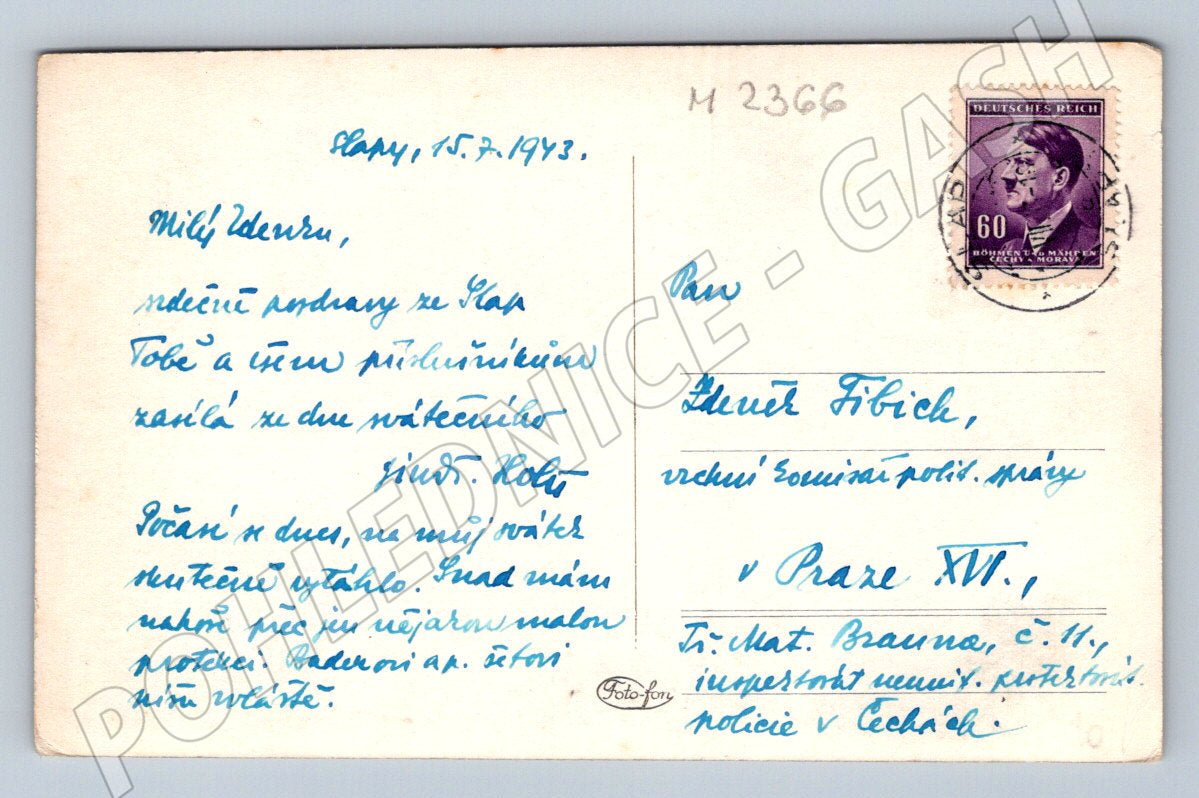 M 2366
Slapy, 15.7.1943.
Milý Zdenku,
srdečné pozdravy ze Slap
Tobě a všem příslušníkům
zasílá ze dne svátečního
Jindř. Holý
Počasí se dnes, na můj svátek
skutečně vytáhlo. Snad mám
nahoře přec jen nějakou malou
protekci.
píši zvláště.
Foto-fon
DEUTSCHES REICH
60
BÖHMEN U. MÄHREN
ČECHY A MORAVA
SLAPY
Pan
Zdeněk Fibich,
vrchní komisař polit. správy
v Praze XVI.,
Tř. Mat. Brauna, č. 11.,
inspektorát neunif. protektorát.
policie v Čechách.
POHLEDNICE - GASH